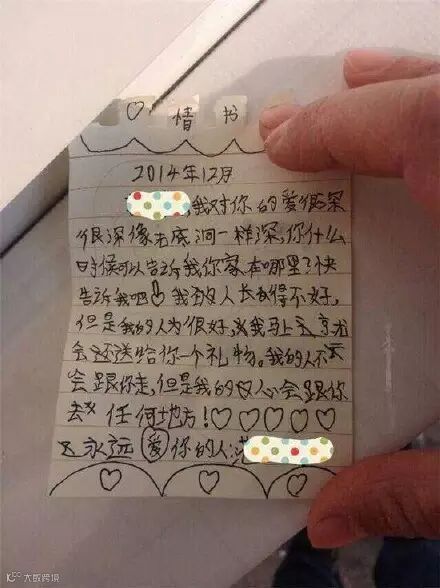 ♡ 情 书
2014年12月
我对你的爱很深
很深像无底洞一样深,你什么
时候可以告诉我你家在哪里?快
告诉我吧!我人长得不好,
但是我的人为很好,我马上
会还送给你一个礼物。我的人不
会跟你走,但是我的心会跟你
去 任何地方!♡♡♡♡♡
永远爱你的人:
大数跨境